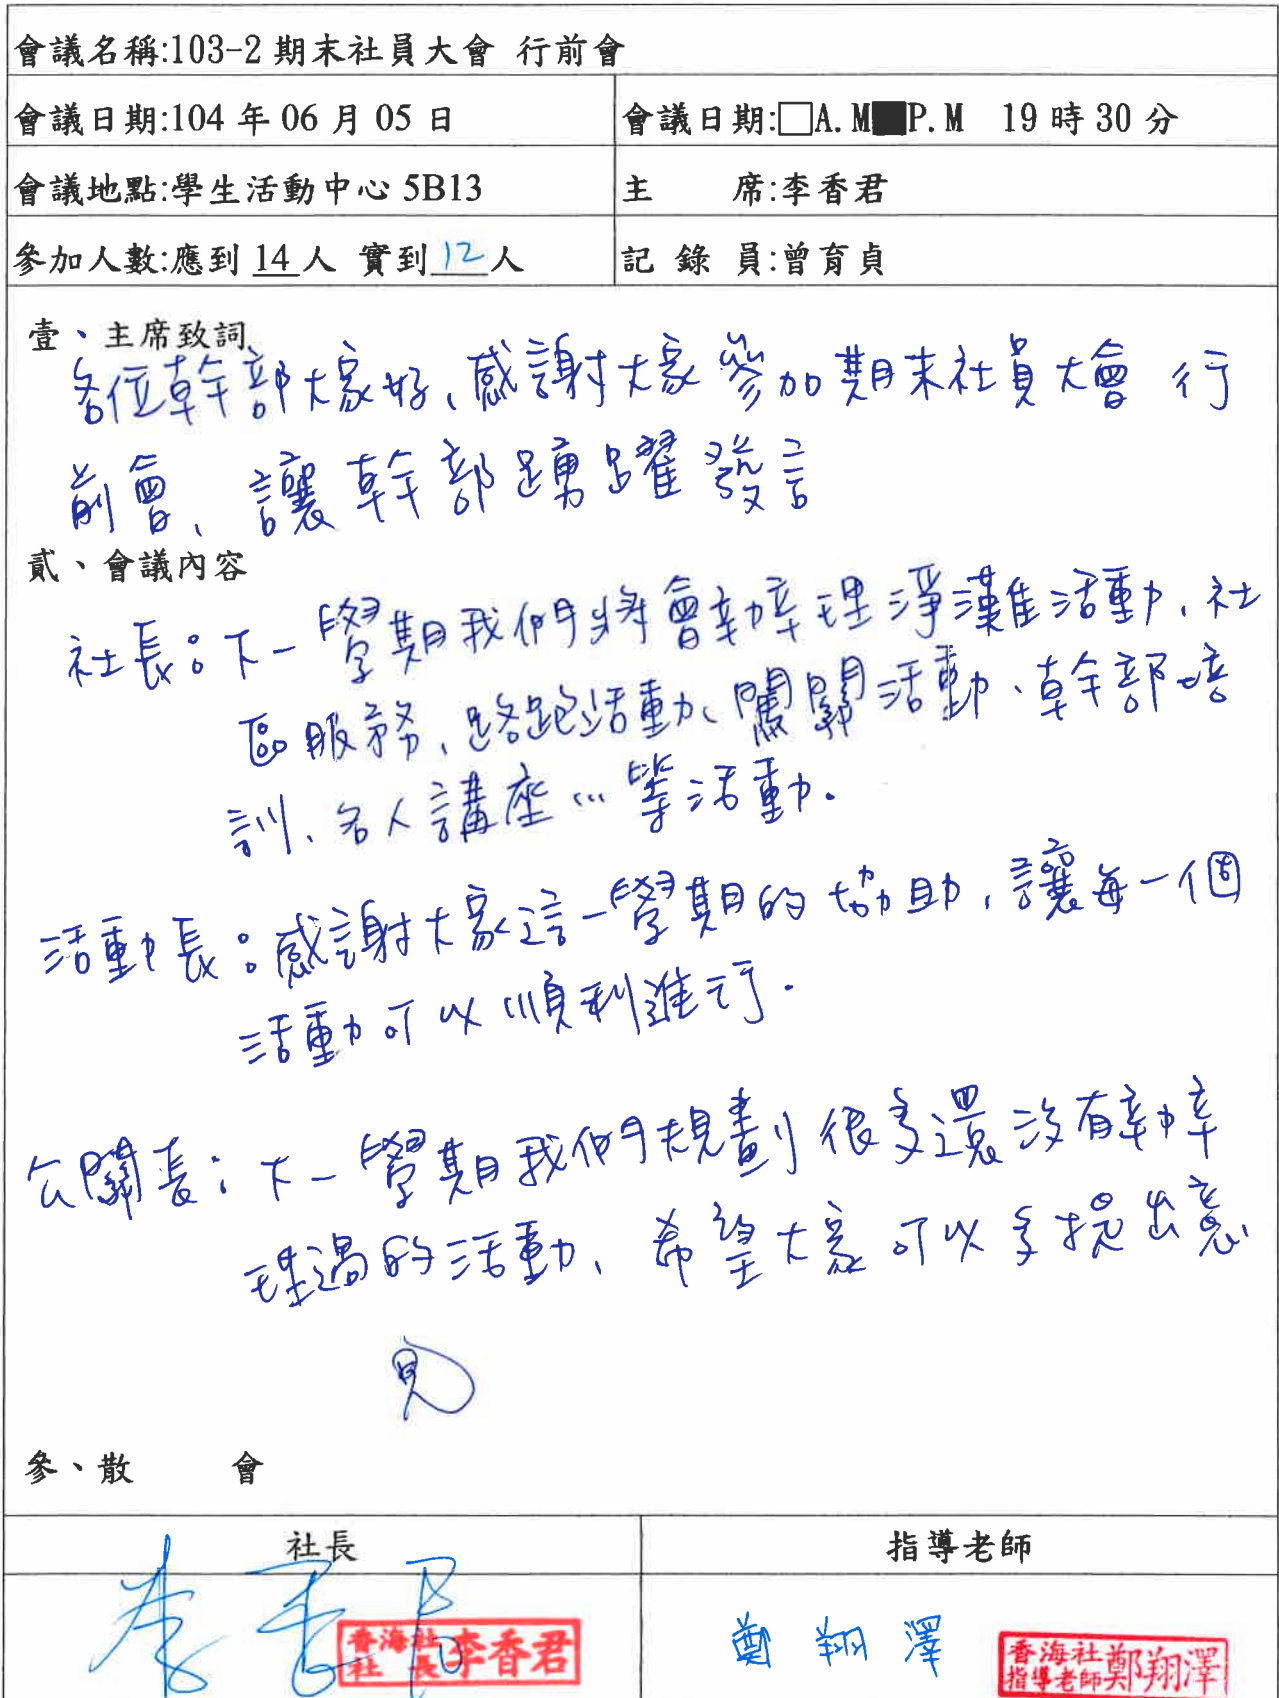 會議名稱:103-2 期末社員大會 行前會
會議日期:104 年 06 月 05 日
會議日期:□A.M■P.M 19 時 30 分
會議地點:學生活動中心 5B13
主 席:李香君
參加人數:應到 14 人 實到 12 人
記 錄 員:曾育貞
壹、主席致詞
各位幹部大家好、感謝大家參加期末社員大會 行
前會、讓幹部踴躍發言
貳、會議內容
社長:下一學期我們將會辦理淨灘活動、社
區服務、路跑活動、闖關活動、幹部培
訓、名人講座…等活動.
活動長:感謝大家這一學期的協助,讓每一個
活動可以順利進行.
公關長:下一學期我們規劃很多還沒有辦
理過的活動、希望大家可以多提出意
見
參、散 會
社長
指導老師
李香君
香海社
社 長
李香君
鄭翔澤
香海社
指導老師
鄭翔澤